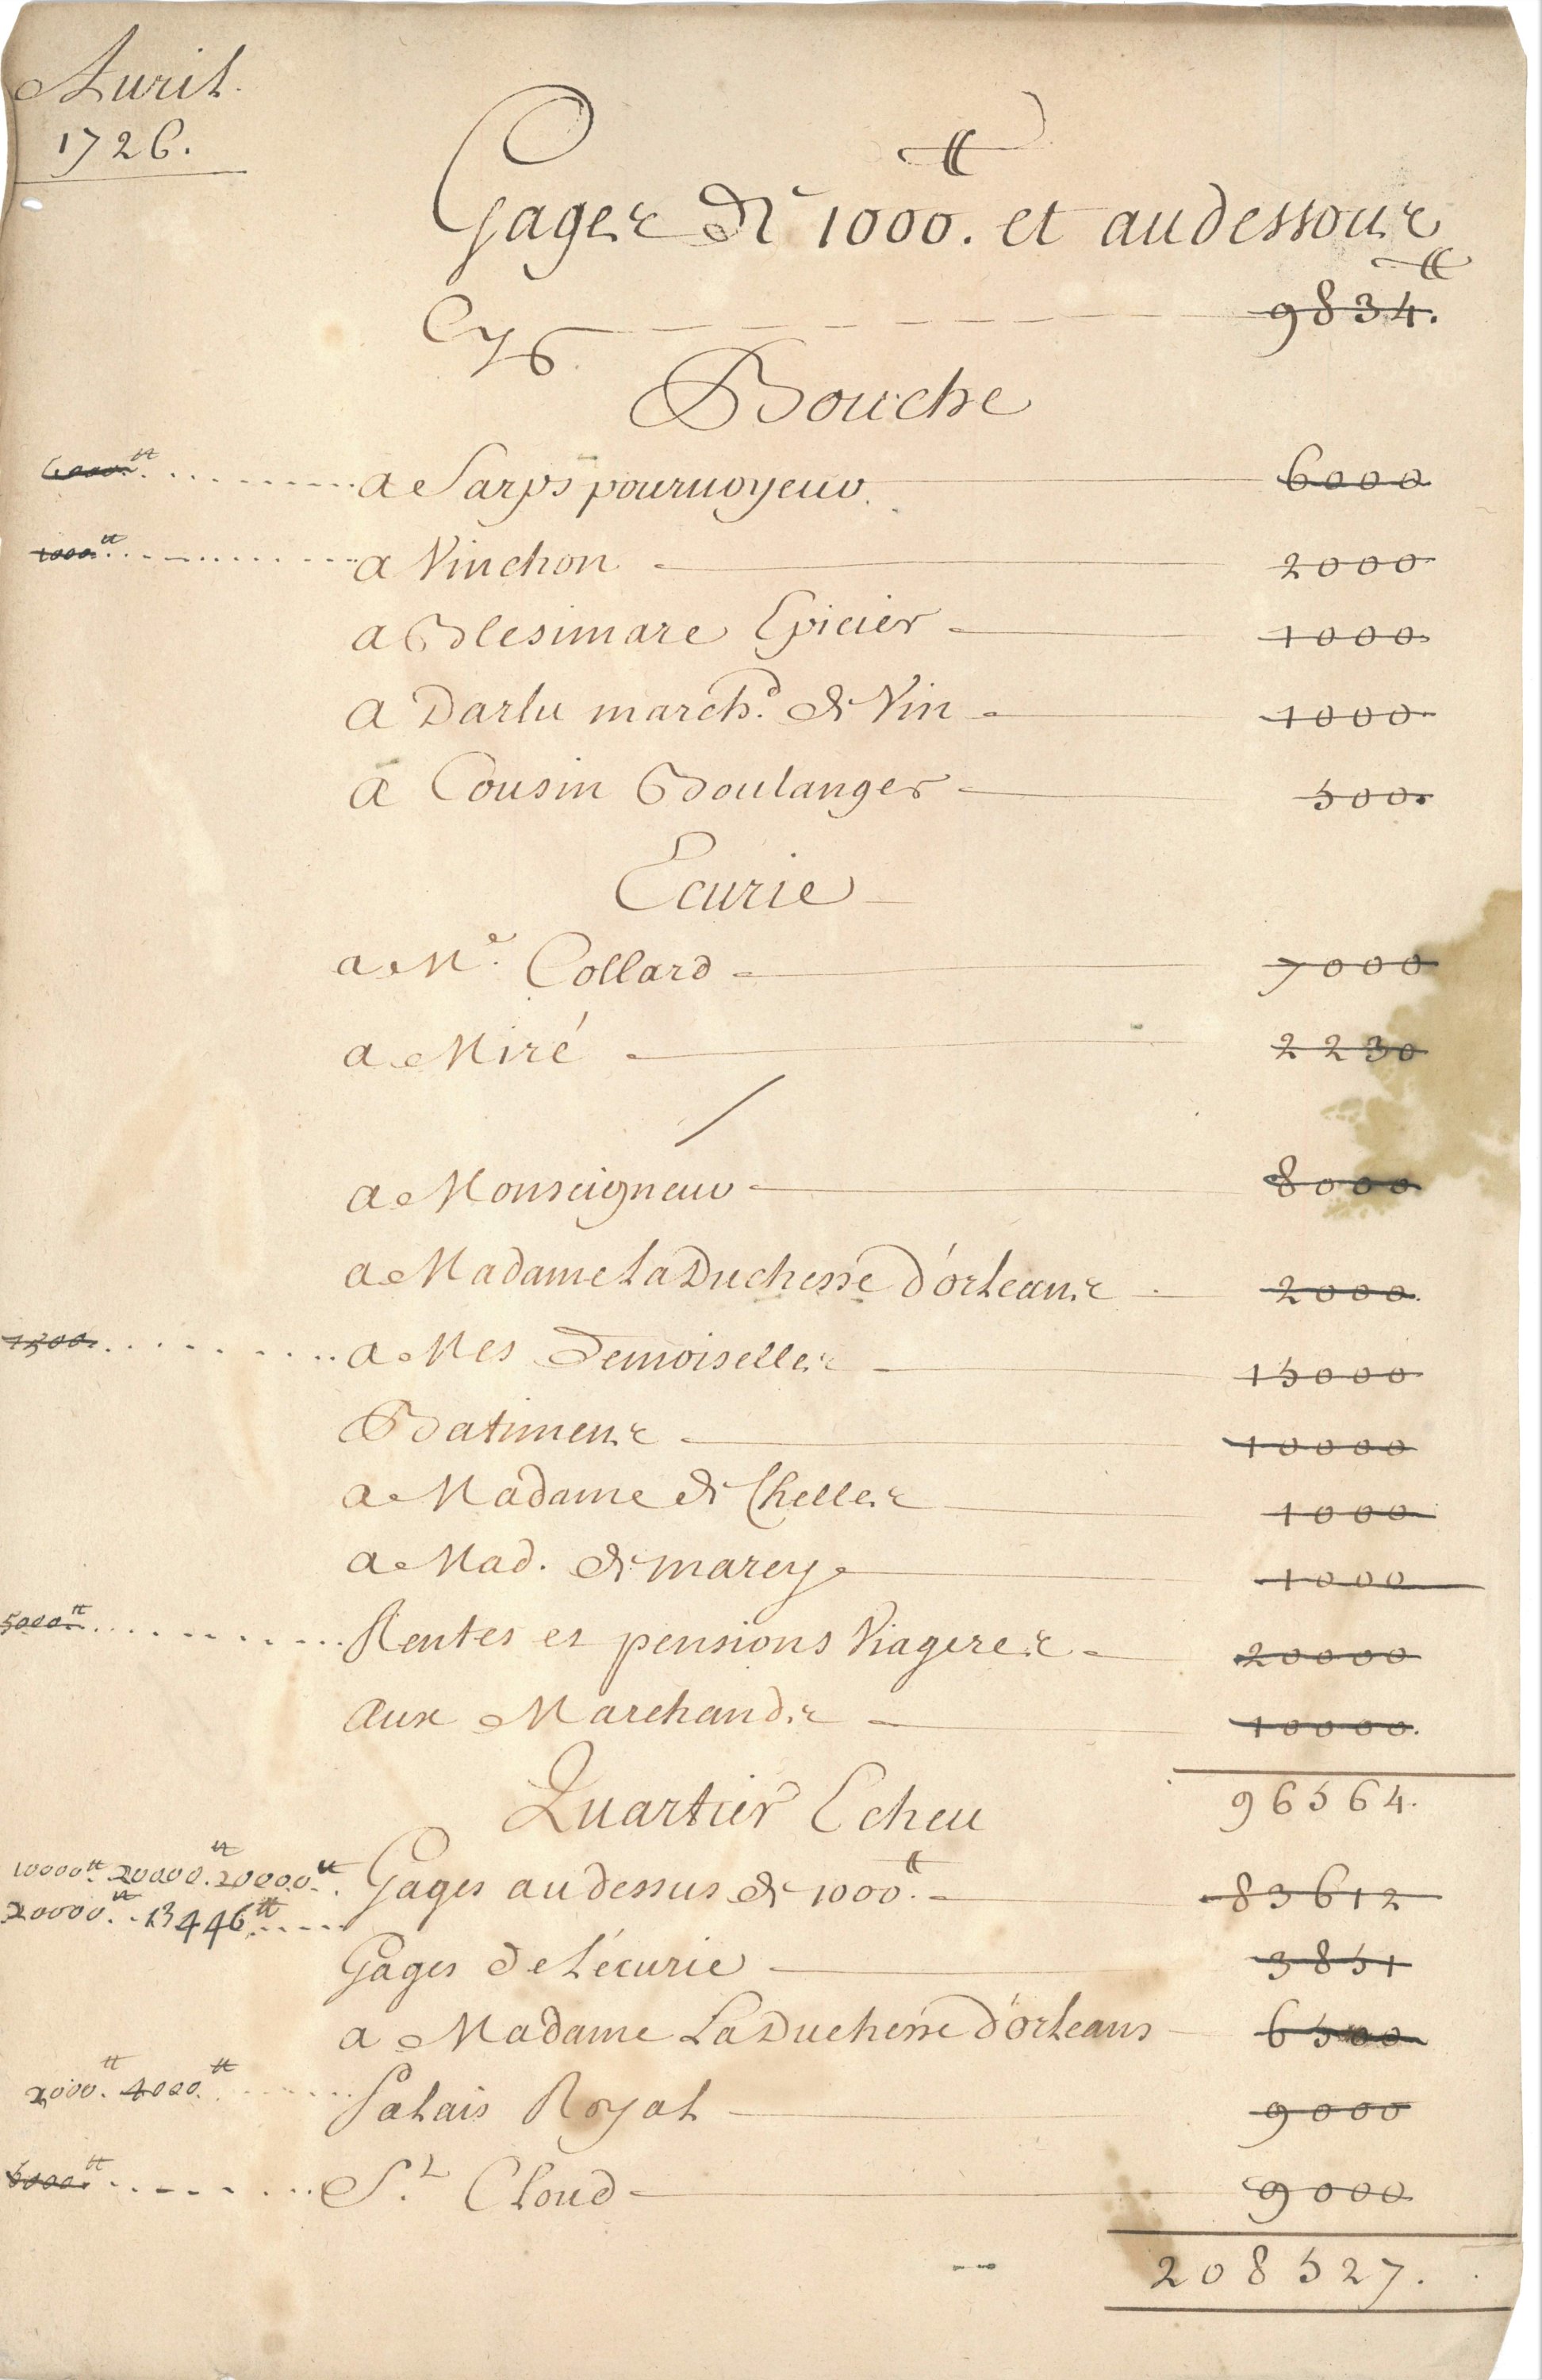 Auril.
1726.
Gages de 1000.ᵗᵗ et audessous
Cy 9834.ᵗᵗ
Bouche
6000.ᵗᵗ a Sarps pouruoyeur. 6000
1000ᵗᵗ a Vinchon 2000
a Blesimare Epicier 1000
a Darlu march.ᵈ de Vin 1000
a Cousin Boulanger 500.
Ecurie
a Mᵉ. Collard 7000
a Miré 2230
a Monseigneur 8000
a Madame La Duchesse d'orleans 2000.
1500. a Mes Demoiselles 15000
Batimens 10000
a Madame de Chelles 1000
a Mad. de marey 1000
5000ᵗᵗ Rentes et pensions Viageres 20000
aux Marchands 10000.
96564.
Quartier Echeu
10000ᵗᵗ. 20000.ᵗᵗ 20000.ᵗᵗ Gages au dessus de 1000.ᵗᵗ 83612
20000.ᵗᵗ 13446.ᵗᵗ
Gages de L'écurie 3851
a Madame La Duchesse d'orleans 6500
2000.ᵗᵗ 4000.ᵗᵗ Palais Royal 9000
5000.ᵗᵗ S.ᵗ Cloud 9000
208527.